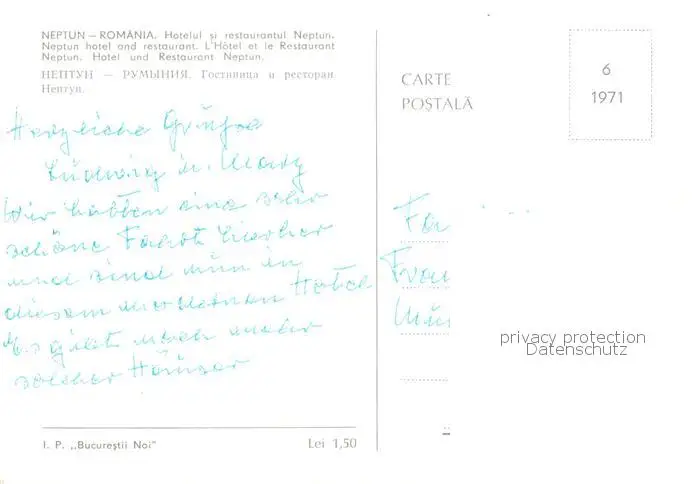 NEPTUN — ROMÂNIA. Hotelul și restaurantul Neptun.
Neptun hotel and restaurant. L'Hôtel et le Restaurant
Neptun. Hotel und Restaurant Neptun.
НЕПТУН — РУМЫНИЯ. Гостиница и ресторан
Нептун.
Herzliche Grüße
Ludwig u. Mary
Wir hatten eine sehr
schöne Fahrt hierher
und sind nun in
diesem modernen Hotel
Es gibt noch mehr
solcher Häuser
I. P. „Bucureștii Noi"
Lei 1,50
CARTE
POȘTALĂ
6
1971
Fa
Frau
Mün
privacy protection
Datenschutz